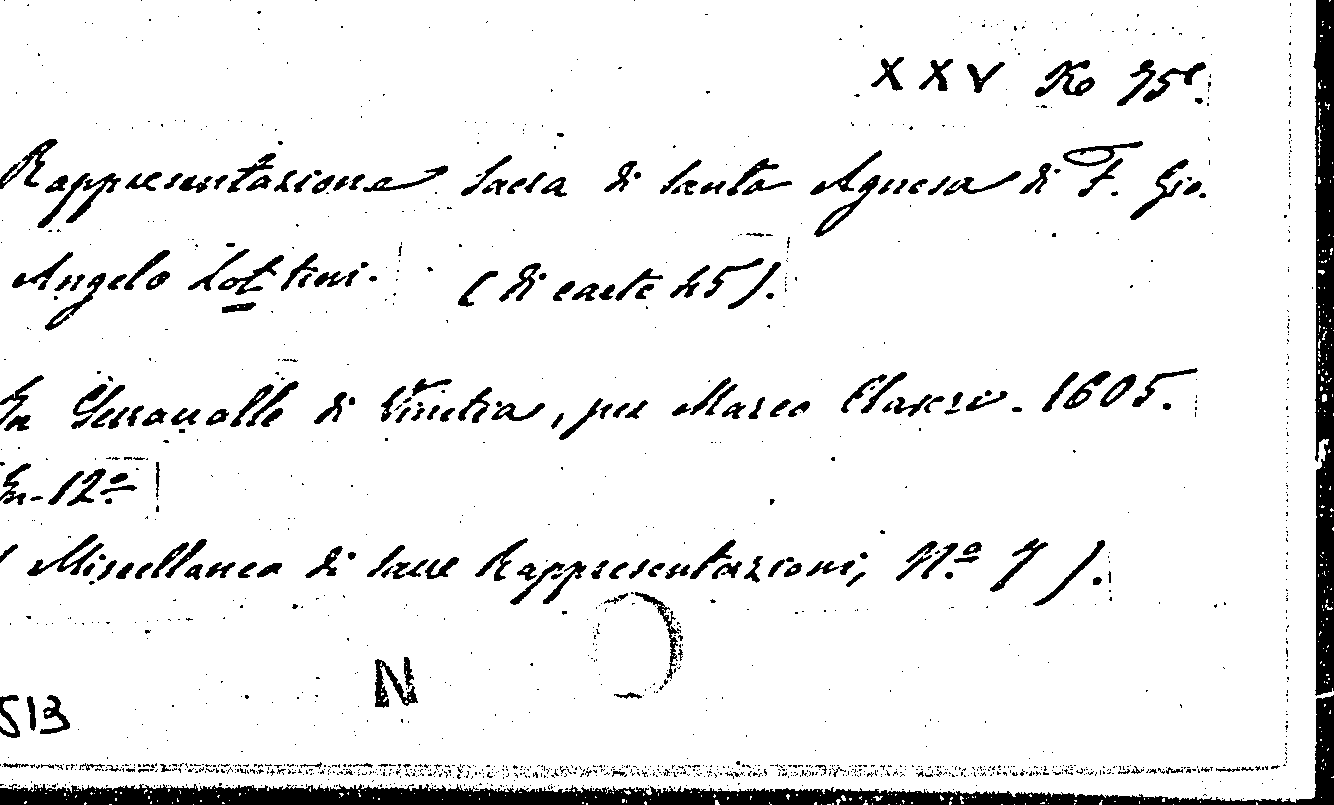 XXV Ko 75e.
Rappresentazione sacra di santa Agnesa di F. Gio.
Angelo Lottini. (di carte 45).
In Serravalle di Venetia, per Marco Claseri. 1605.
In-12º
( Miscellanea di sacre Rappresentazioni, N.º 7 ).
N
513